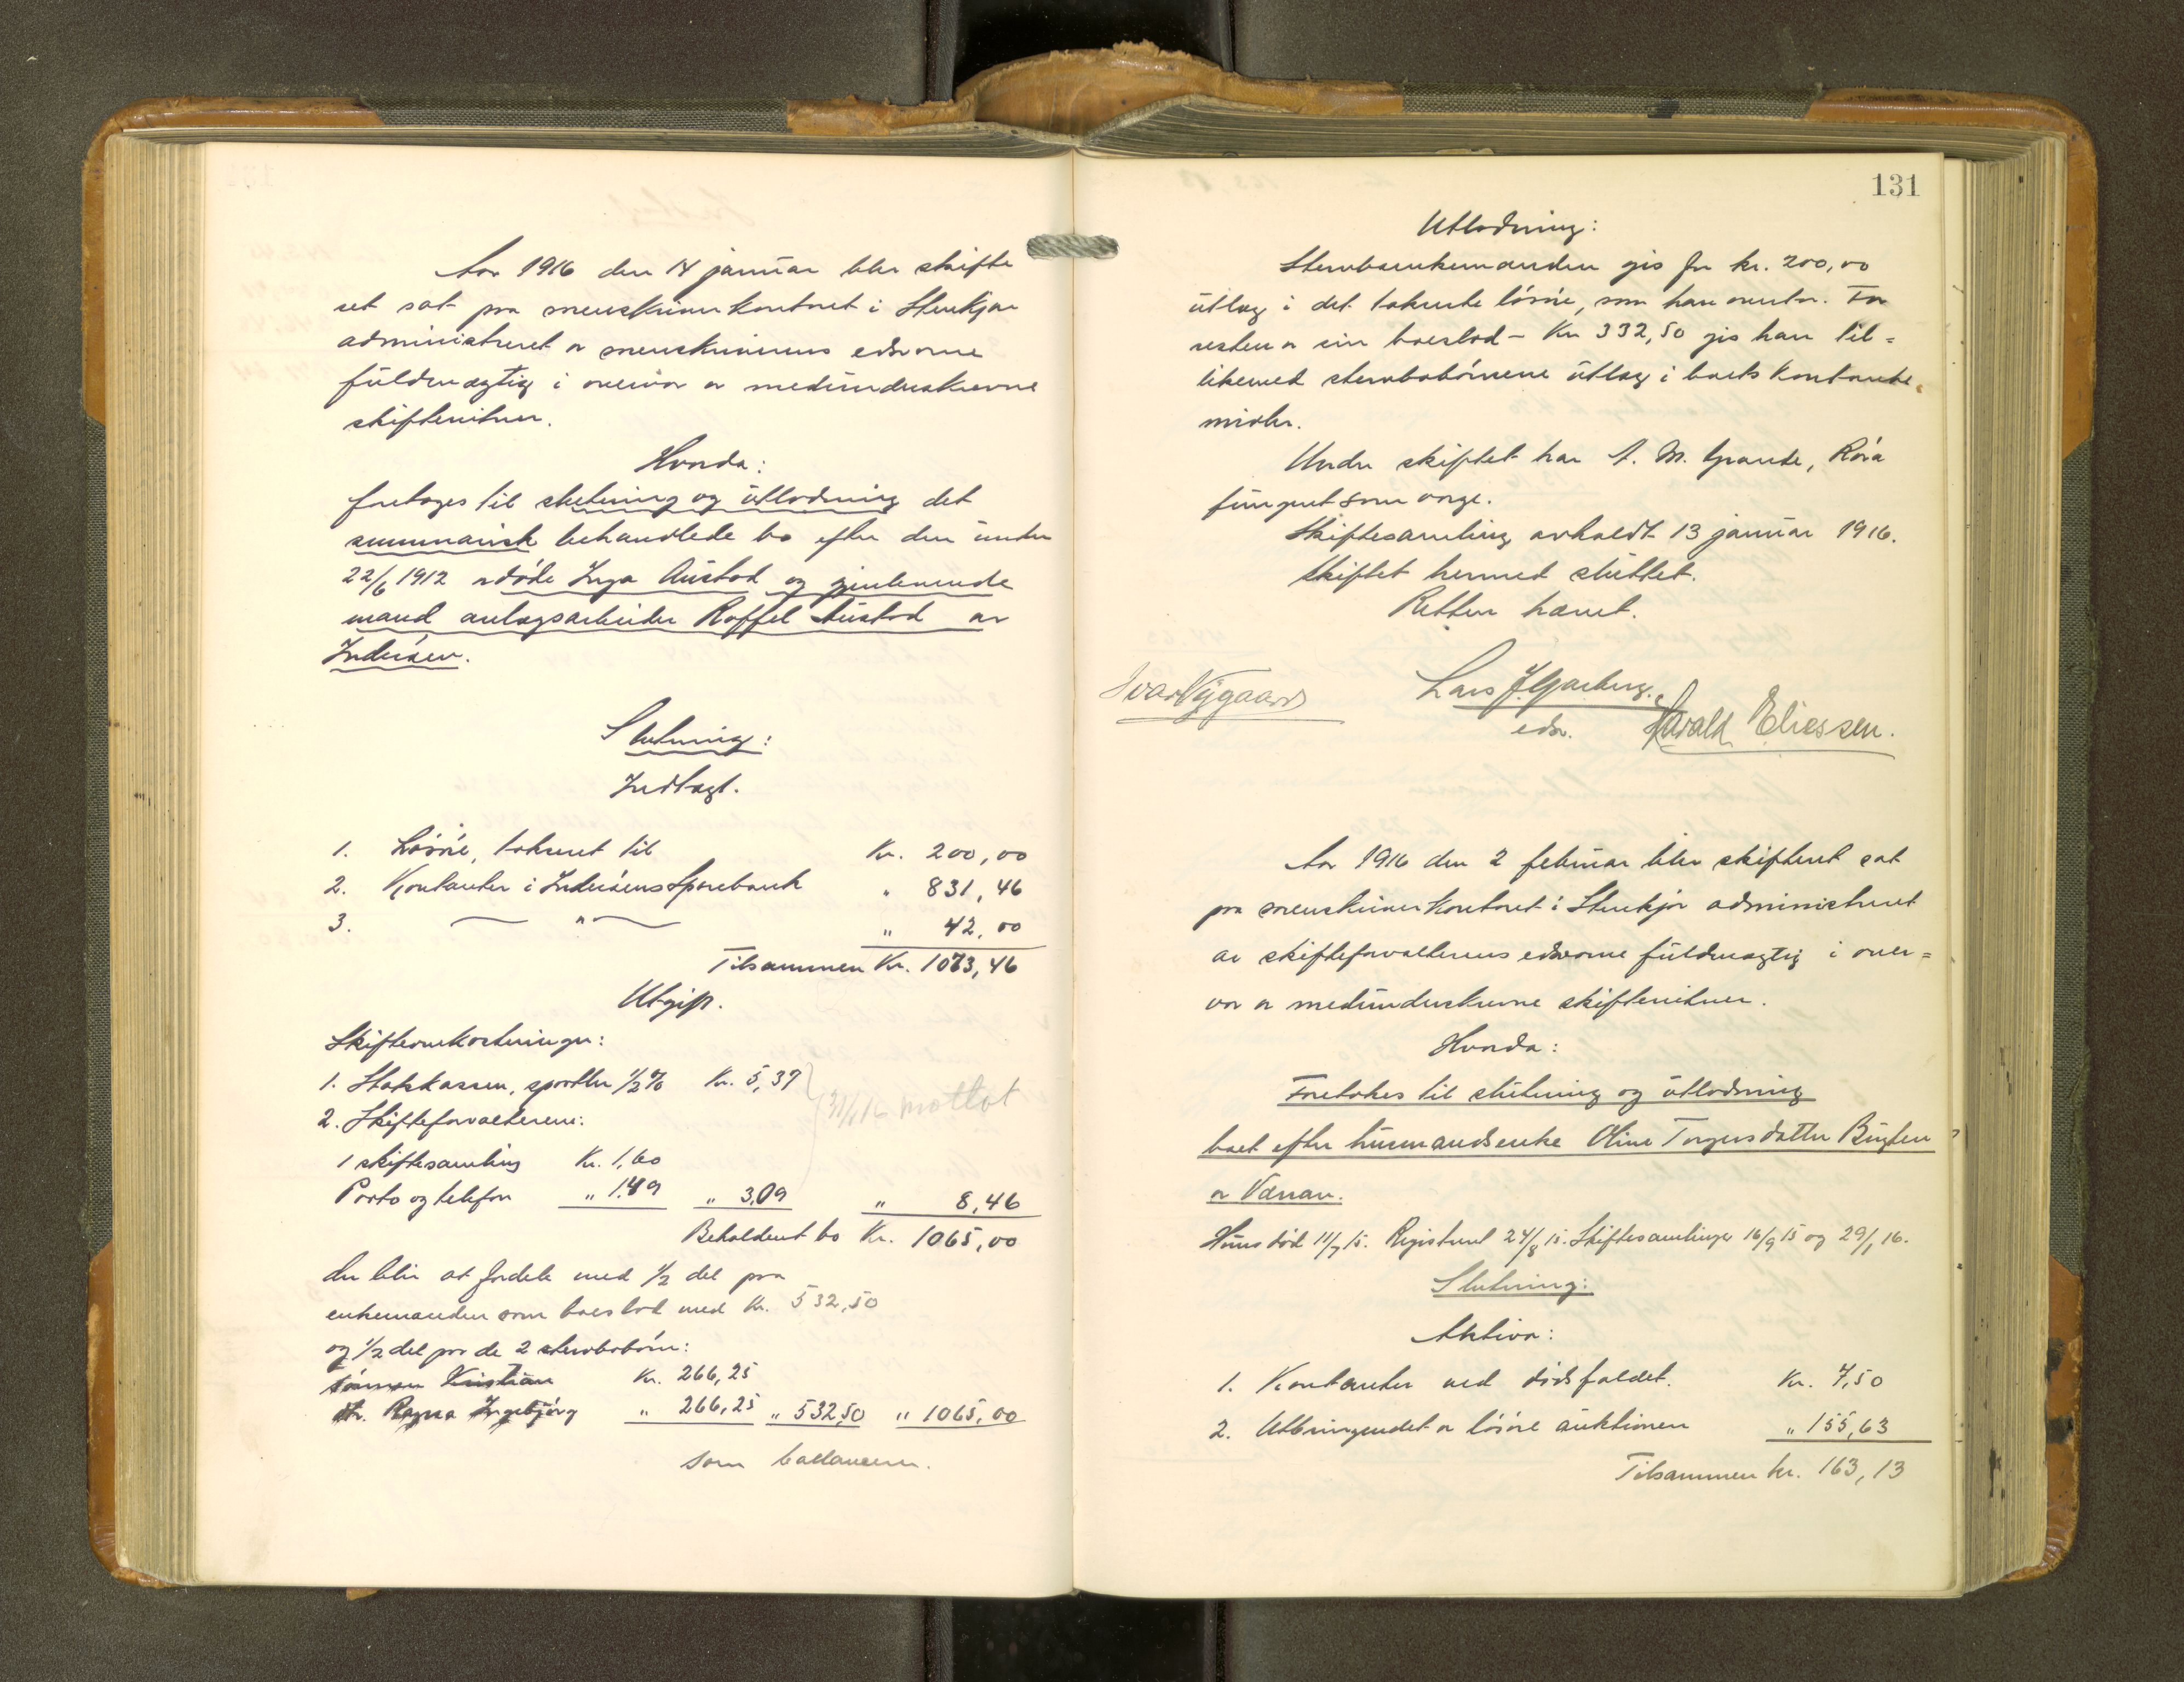 Aar 1916 den 14 januar blev skifte
ret sat paa sorenskriverkontoret i Stenkjær
administreret av sorenskriverens edsvorne
fuldmægtig i overvær av medunderskrevne
skiftevitner.
Hvorda:
foretages til slutning og utlodning det
summarisk behandlede bo efter den under
22/6 1912 avdøde Inga Austad og gjenlevende
mand anlægsarbeider Roffel Austad av
Inderøen.
Slutning:
Indtægt.
1. Løsøre, taksert til Kr. 200,00
2. Kontanter i Inderøens Sparebank " 831,46
3. — " — " 42,00
Tilsammen Kr. 1073,46
Utgift.
Skifteomkostninger:
1. Statskassen, sportler ½ % Kr. 5,37
31/1 16 mottat
2. Skifteforvalteren:
1 skiftesamling Kr. 1,60
Porto og telefon " 1.49 " 3,09 " 8,46
Beholdent bo Kr. 1065,00
der blir at fordele med ½ del paa
enkemanden som boeslod med Kr. 532,50
og ½ del paa de 2 stervbobørn:
sønnen Kristian Kr. 266,25
dtr. Ragna Ingebjørg " 266,25 " 532,50 " 1065,00
som balancerer.
131
Utlodning:
Stervboenkemanden gis for kr. 200,00
utlæg i det takserte løsøre, som han overtar. For
resten av sin boeslod – Kr 332,50 gis han til=
likemed stervbobørnene utlæg i boets kontante
midler.
Under skiftet har A. M. Grande, Røra
fungert som verge.
Skiftesamling avholdt 13 januar 1916.
Skiftet hermed sluttet.
Retten hævet.
Ivar Nygaard Lars J. Garberg.
edsv. Harald Eliessen.
Aar 1916 den 2 februar blev skifteret sat
paa sorenskriverkontoret i Stenkjær administreret
av skifteforvalterens edsvorne fuldmægtig i over=
vær av medunderskrevne skiftevitner.
Hvorda:
Foretokes til slutning og utlodning
boet efter husmandsenke Oline Torgersdatter
av Værran.
Hun død 11/7 15. Registrert 24/8 15. Skiftesamlinger 16/9 15 og 29/1 16.
Slutning:
Aktiva:
1. Kontanter ved dødsfaldet. Kr. 7,50
2. Utbringendet av løsøre auktionen " 155,63
Tilsammen kr. 163,13